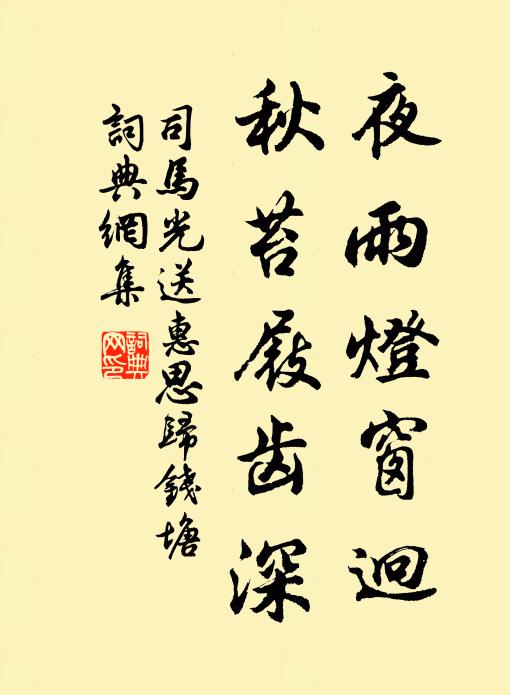 夜雨燈窗迥
秋苔屐齒深
司馬光送惠思歸錢塘
詞典網集
詞典
网印